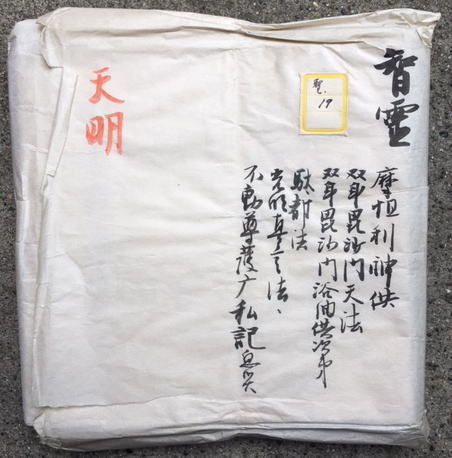 智霊
聖.
19
摩怛利神供
双身毘沙門天法
双身毘沙門浴油供次第
駄都法
光明真言法、
不動尊護广私記息災
天明